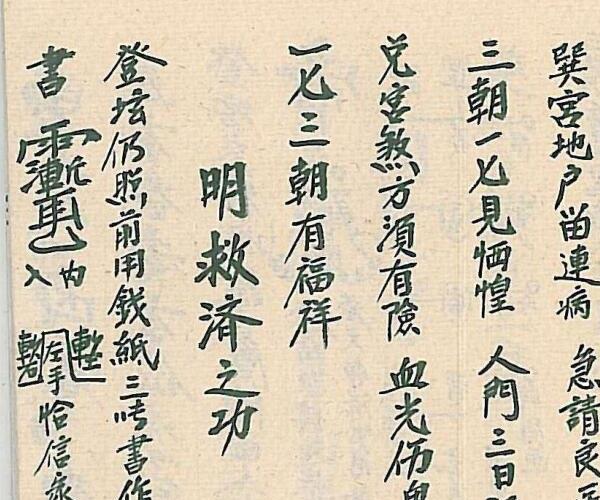 巽宮地戶留連病 急請良
三朝一七見恓惶 人門三日
兌宮煞方須有險 血光伤
一七三朝有福祥
明救济之功
登坛仍照前用錢紙三 書作
書 入內 左手恰信